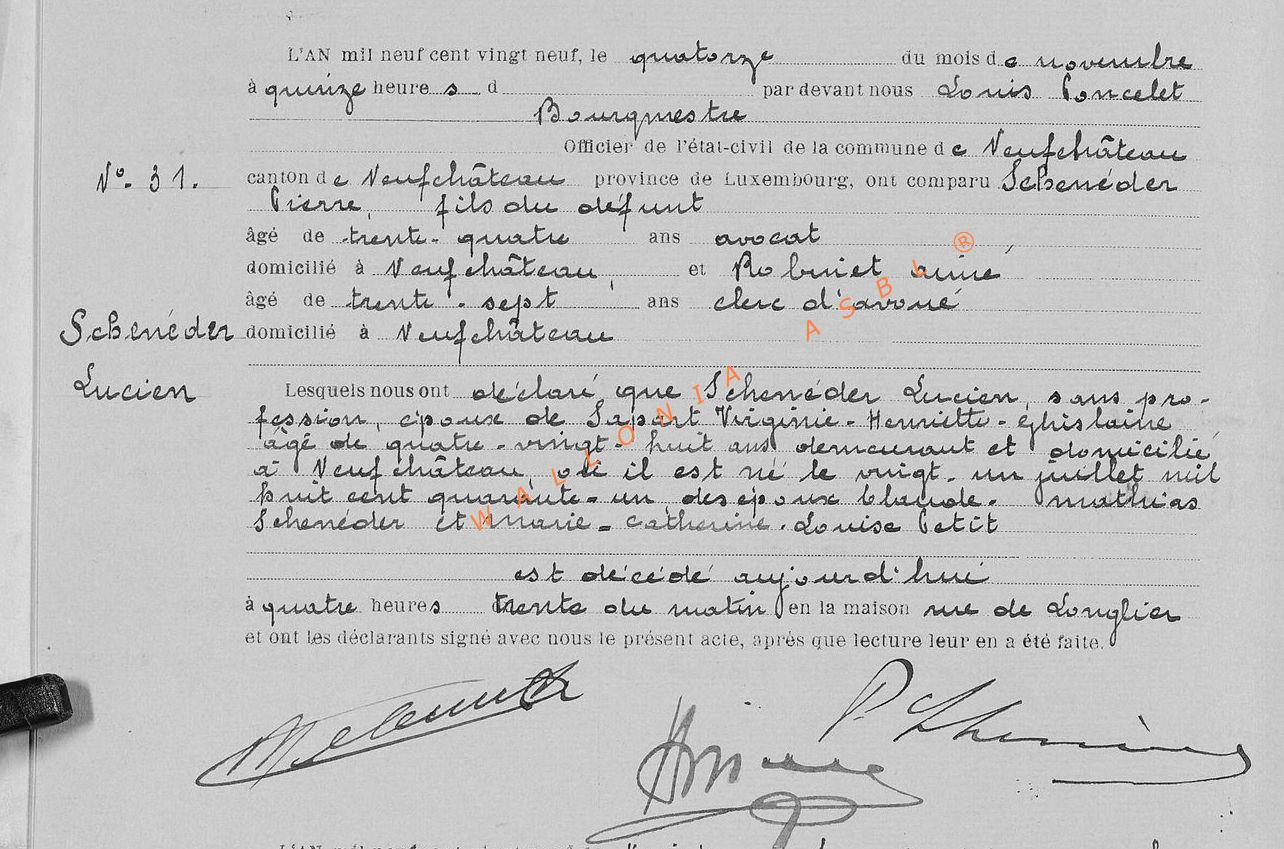 L'AN mil neuf cent vingt neuf, le quatorze du mois de novembre
à quinze heure s d par devant nous Louis Poncelet
Bourgmestre
Officier de l'état-civil de la commune de Neufchâteau
Nº. 31. canton de Neufchâteau province de Luxembourg, ont comparu Schenéder
Pierre, fils du défunt
âgé de trente-quatre ans avocat
domicilié à Neufchâteau, et Robinet aimé
âgé de trente-sept ans clerc d'avoué
Schenéder domicilié à Neufchâteau
Lucien Lesquels nous ont déclaré que Schenéder Lucien, sans pro-
fession, époux de Sapart Virginie-Henriette-Ghislaine
âgé de quatre-vingt-huit ans demeurant et domicilié
à Neufchâteau, où il est né le vingt-un juillet mil
huit cent quarante-un des époux Claude-mathias
Schenéder et marie-catherine-Louise Petit
est décédé aujourd'hui
à quatre heures trente du matin en la maison rue de Longlier
et ont les déclarants signé avec nous le présent acte, après que lecture leur en a été faite.
WALLONIA ASBL ®